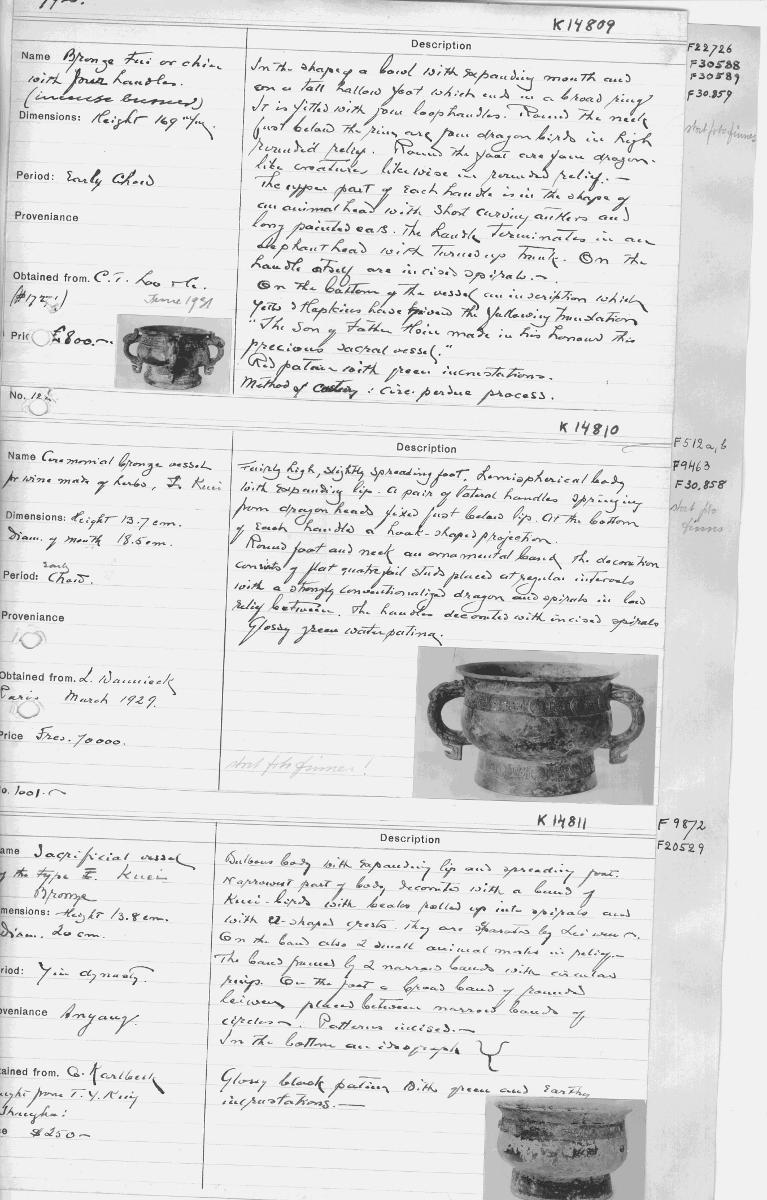 K14809
Description
Name Bronze Tui or chiu
with four handles.
(incense burner)
Dimensions: Height 169 m/m.
Period: Early Chow
Provenance
Obtained from. C.T. Loo & Co.
June 1931
Price £800.—
In the shape of a bowl with expanding mouth and
on a tall hollow foot which ends in a broad ring
It is fitted with four loophandles. Round the neck
just below the rim are four dragon birds in high
rounded relief. Round the foot are four dragon-
like creatures likewise in rounded relief.—
The upper part of each handle is in the shape of
an animal head with short curving antlers and
long pointed ears. The handle terminates in an
elephant head with turned up trunk. On the
handle itself are incised spirals.—
On the bottom of the vessel an inscription which
Yetts & Hopkins have given the following translation
"The Son of Father made in his honour this
precious sacral vessel."
Red patina with green incrustations.
Method of casting: cire perdue process.
F22726
F30588
F30589
F30.859
stort foto finnes
No. 12
K14810
Description
Name Ceremonial bronze vessel
for wine made of herbs, Kuei
Dimensions: Height 13.7 cm.
Diam. of mouth 18.5 cm.
Period: Early Chow.
Provenance
Obtained from. L. Wannieck
Paris March 1929.
Price Frcs. 70000.
No. 1001.—
Fairly high, slightly spreading foot, hemispherical body
with expanding lip. A pair of lateral handles springing
from dragon heads fixed just below lip. At the bottom
of each handle a hook-shaped projection.
Round foot and neck an ornamental band, the decoration
consists of flat quatrefoil studs placed at regular intervals
with a strongly conventionalized dragon and spirals in low
relief between. The handles decorated with incised spirals
Glossy green water patina.
stort foto finnes!
F512a,b
F9463
F30.858
stort foto
finnes
K14811
Description
Name Sacrificial vessel
of the type Kuei
Bronze
Dimensions: Height 13.8 cm.
Diam. 20 cm.
Period: Yin dynasty.
Provenance Anyang.
Obtained from. O. Karlbeck
bought from T. Y. King
Shanghai
Price $250—
Bulbous body with expanding lip and spreading foot.
Narrowest part of body decorated with a band of
Kuei-birds with beaks rolled up into spirals and
with U-shaped crests. They are separated by Lei wen.
On the band also 2 small animal masks in relief.—
The band framed by 2 narrow bands with circular
rings. On the foot a broad band of rounded
leiwen placed between narrow bands of
circles—. Patterns incised.—
In the bottom an ideograph
Glossy black patina with green and earthy
incrustations.—
F9872
F20529